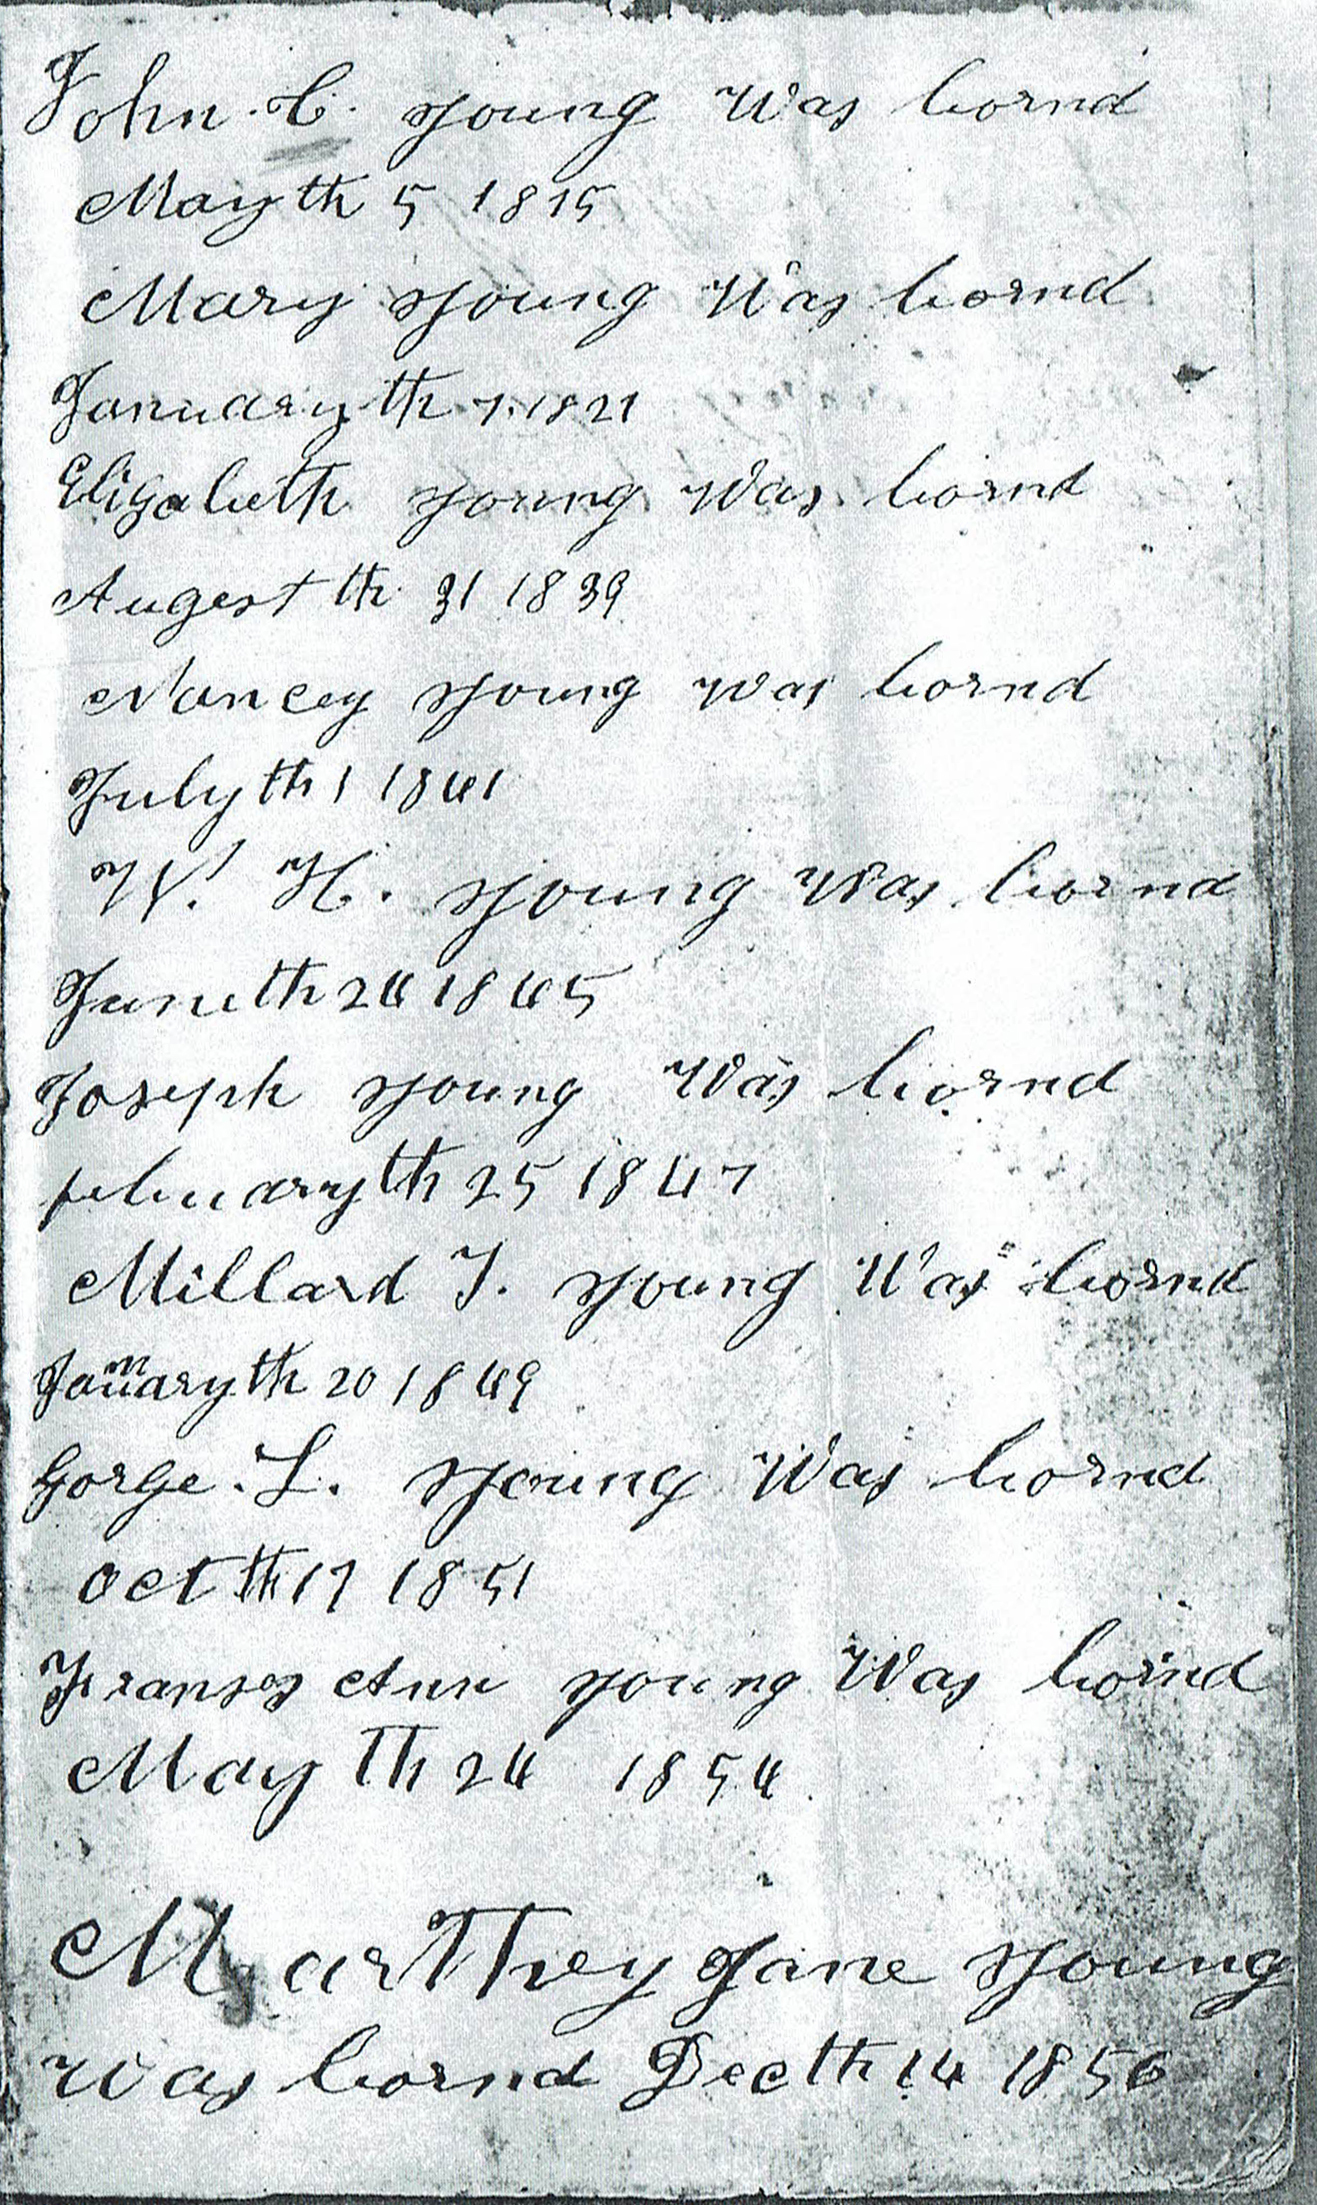 John. C. young Was bornd
May th 5 1815
Mary young Was bornd
January th 7. 1821
Elizabeth young Was bornd
Augest th 31 1839
Nancey young was bornd
July th 1 1841
W. H. young Was bornd
June th 24 1845
Joseph young Was bornd
february th 25 1847
Millard F. young Was bornd
January th 20 1849
Gorge. L. young Was bornd
oct th 17 1851
Franses Ann young Was bornd
May Th 24 1854
MarThey Jane young
was bornd Dec th 14 1856